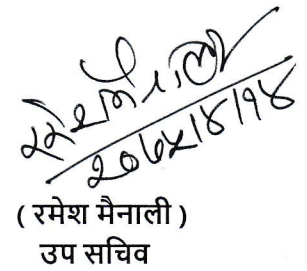 रमेश मैनाली
२०७५/४/१४
( रमेश मैनाली )
उप सचिव